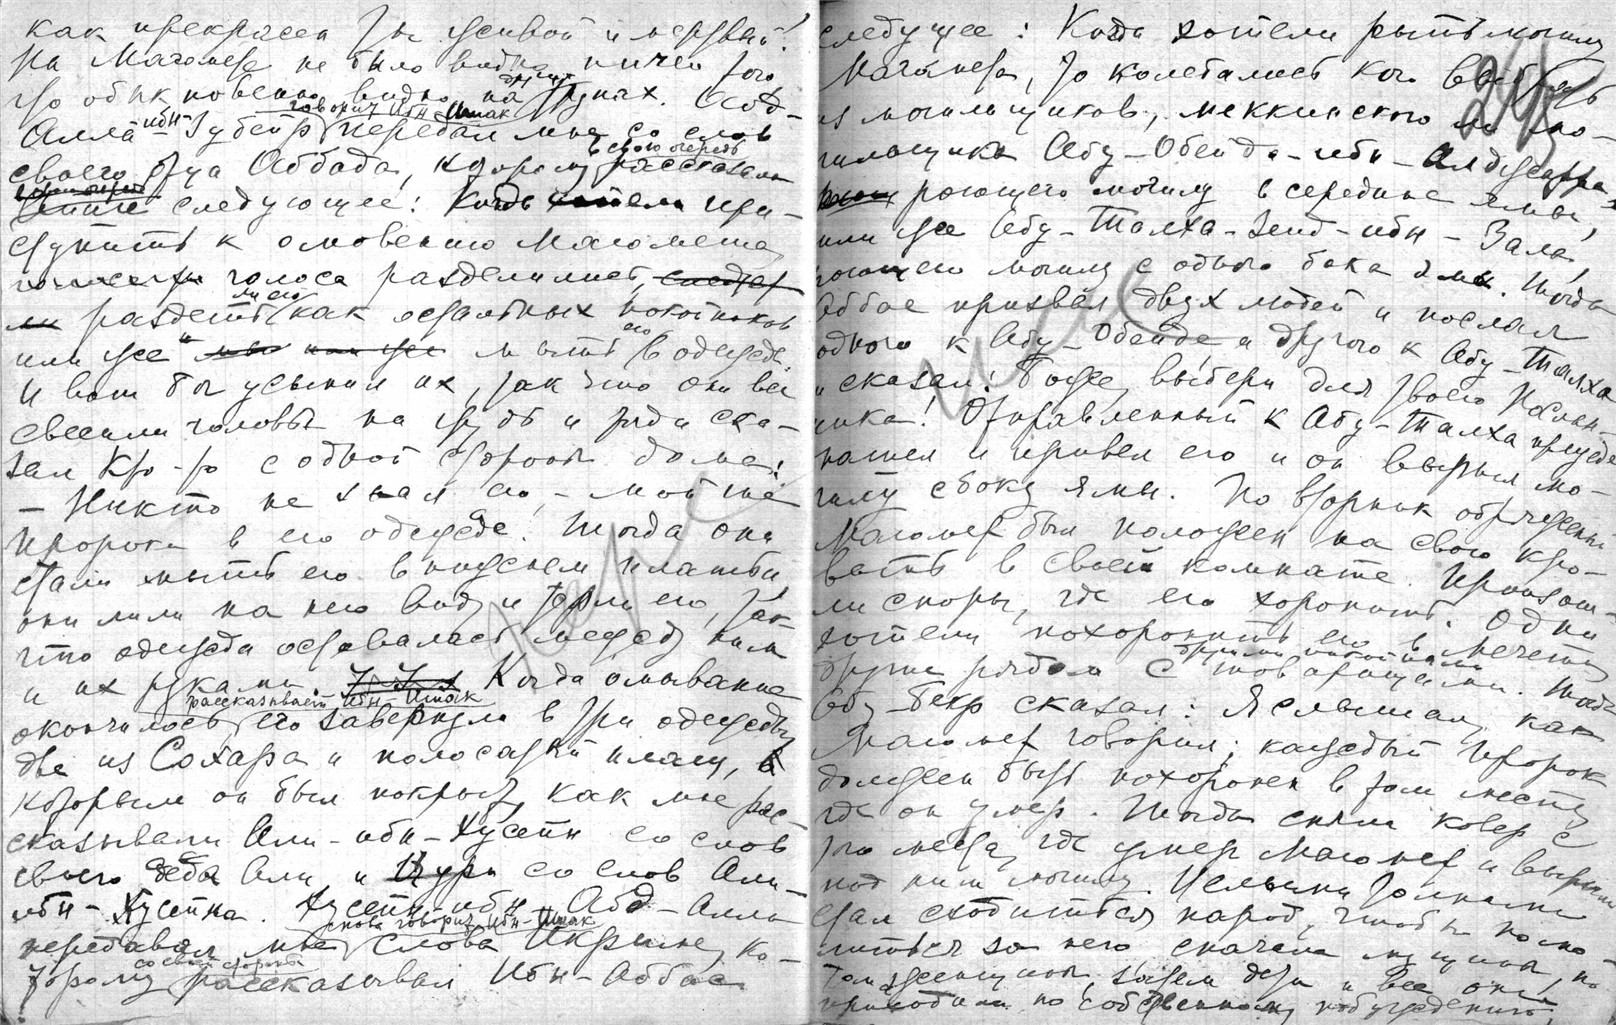 как прекрасен ты живой и мертвый!
На Магомете не было видно ничего того
что обыкновенно видно на других трупах.
Алла-ибн-Зубейр (говорит Ибн Исхак) передал мне со слов
своего отца Аббада, которому в свою очередь рассказали
следующее: Когда хотели при-
ступить к омовению Магомета
голоса разделились,
раздеть ли его как остальных покойников
или же мыть его в одежде.
И вот бог усыпил их, так что они все
свесили головы на грудь и тогда ска-
зал кто-то с одной стороны дома:
— Никто не знал его, — мойте
Пророка в его одежде! Тогда они
стали мыть его в нижнем платьи,
они лили на него воду и терли его, так
что одежда оставалась между ним
и их руками. Когда омывание
окончилось (рассказывает Ибн Исхак) его завернули в три одежды,
две из Сохара и полосатый плащ,
которым он был покрыт, как мне рас-
сказывали Али-ибн-Хусейн со слов
своего деда Али и Зухри со слов Али-
ибн-Хусейна. Хусейн-ибн-Абд-Алла
передавал мне (снова говорит Ибн-Исхак) слова Икримы, ко-
торому со своей стороны рассказывал Ибн-Аббас
следующее: Когда хотели рыть могилу
Магомета, то колебались кого выбрать
из могильщиков, меккинского ли мо-
гильщика Абу-Обейда-ибн-Алджарра-
роющего могилу в середине ямы,
или же Абу-Талха-Зеид-ибн-Зала,
роющего могилу с одного бока ямы. Тогда
Аббас призвал двух людей и послал
одного к Абу-Обейде а другого к Абу-Талха
и сказал: Боже, выбери для твоего Послан-
ника! Отправленный к Абу-Талха прежде
нашел и привел его и он вырыл мо-
гилу сбоку ямы. Во вторник обряженный
Магомет был положен на свою кро-
вать в своей комнате. Произош-
ли споры, где его хоронить. Одни
хотели похоронить его в мечети,
другие рядом с другими товарищами. Тогда
Абу-Бекр сказал: Я слышал, как
Магомет говорил; каждый Пророк
должен быть похоронен в том месте
где он умер. Тогда сняли ковер с
того места, где умер Магомет и вырыли
под ним могилу. Целыми толпами
стал сходиться народ, чтобы помо-
литься за него сначала мущины, по-
том женщины, затем дети и все они
приходили по собственному побуждению,